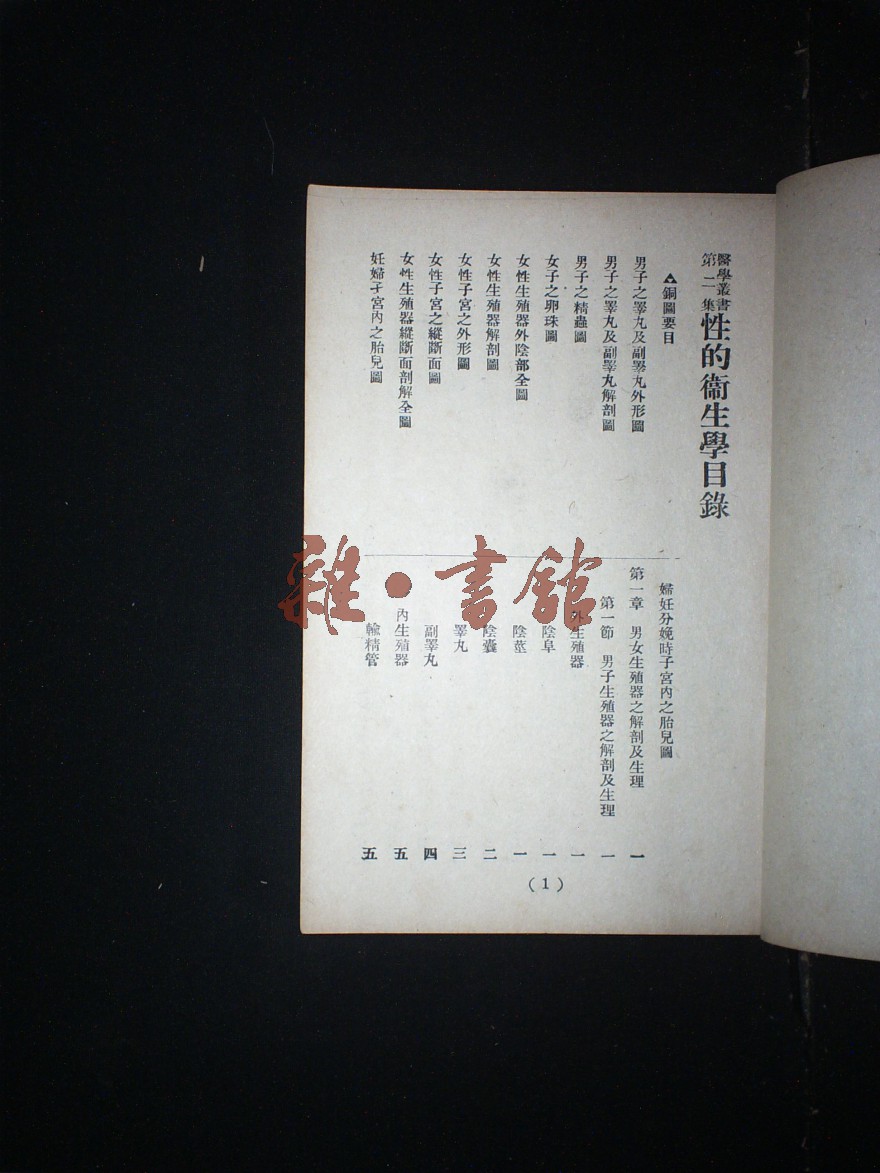 醫學叢書
第二集
性的衞生學目錄
▲銅圖要目
男子之睪丸及副睪丸外形圖
男子之睪丸及副睪丸解剖圖
男子之精蟲圖
女子之卵珠圖
女性生殖器外陰部全圖
女性生殖器解剖圖
女性子宮之外形圖
女性子宮之縱斷面圖
女性生殖器縱斷面剖解全圖
妊婦子宮內之胎兒圖
婦妊分娩時子宮內之胎兒圖
第一章 男女生殖器之解剖及生理 一
第一節 男子生殖器之解剖及生理 一
外生殖器 一
陰阜 一
陰莖 一
陰囊 二
睪丸 三
副睪丸 四
內生殖器 五
輸精管 五
(1)
雜·書館